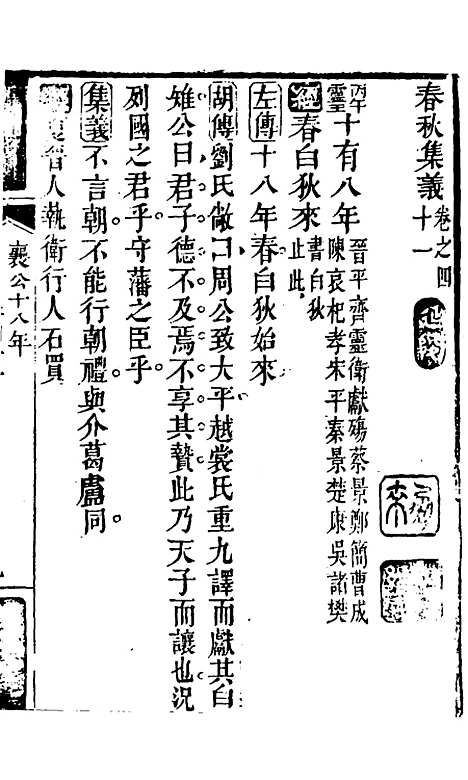 春秋集義卷之四十一
丙午靈王十有八年晉平齊靈衛獻殤蔡景鄭簡曹成陳哀杞孝宋平秦景楚康吳諸樊
經春白狄來書白狄止此
左傳十八年春白狄始來
胡傳劉氏敞曰周公致大平越裳氏重九譯而獻其白
雉公曰君子德不及焉不享其贄此乃天子而讓也況
列國之君乎守藩之臣乎
集義不言朝不能行朝禮與介葛盧同
夏晉人執衛行人石買
襄公十八年